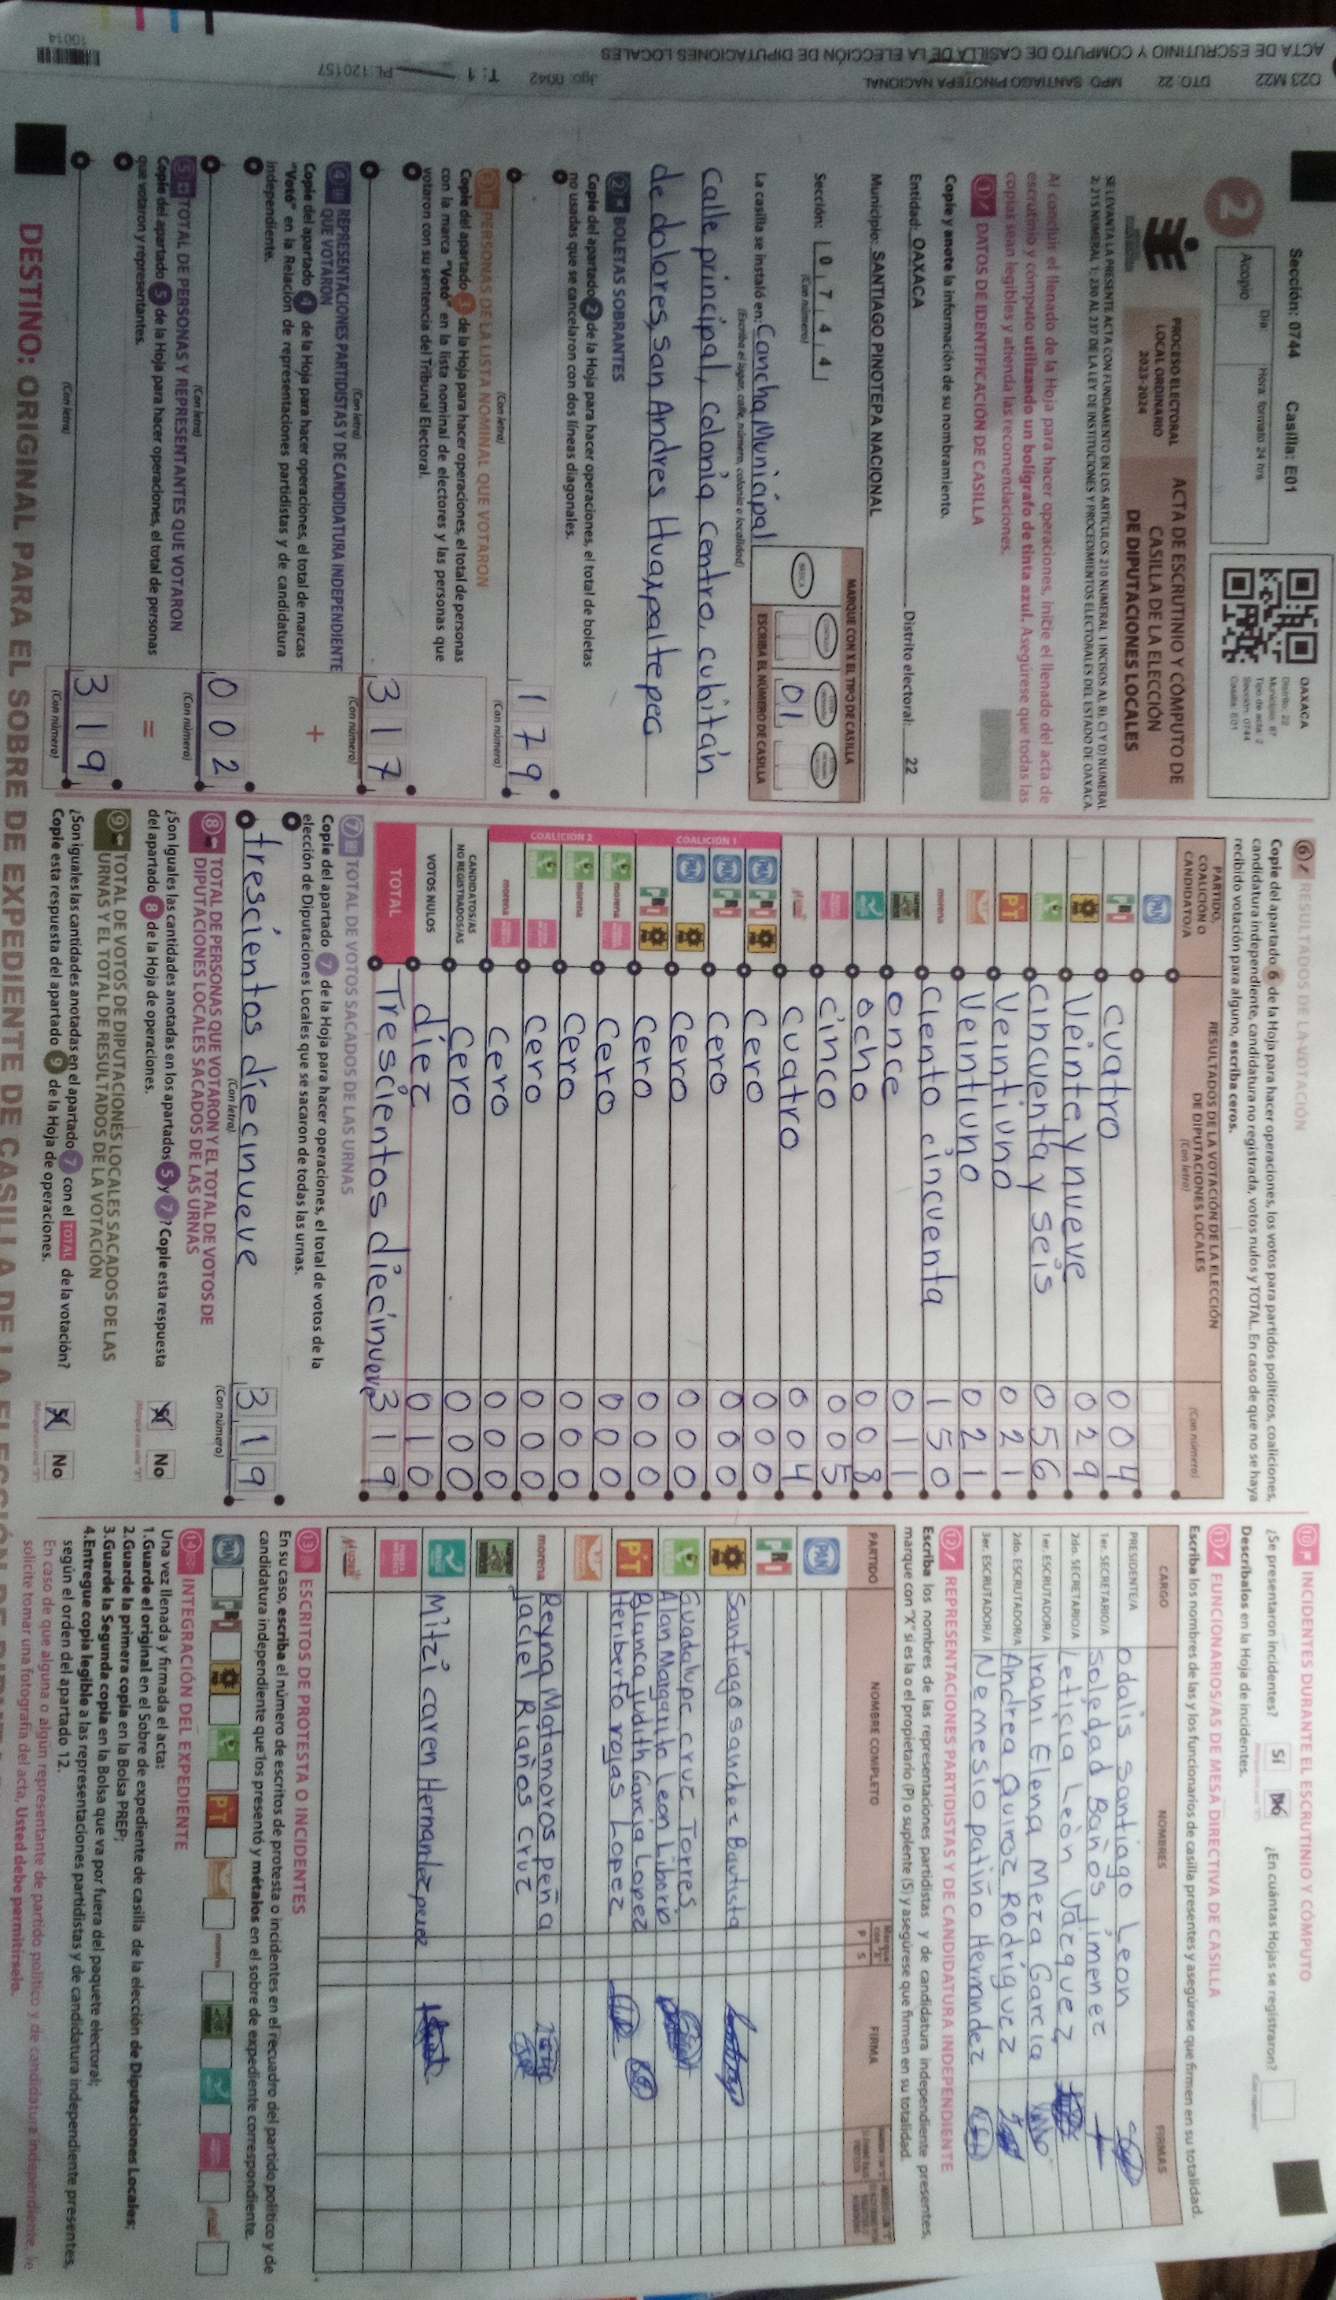 ACTA DE ESCRUTINIO Y CÓMPUTO DE CASILLA DE LA ELECCIÓN DE DIPUTACIONES LOCALES
D23 M22 DTO: 22 MPO: SANTIAGO PINOTEPA NACIONAL Jgo: 0042 T: 1 PL: 120157
10014
Sección: 0744 Casilla: E01
2
Acopio
Día: Hora: formato 24 hrs
OAXACA
Distrito: 22
Tipo de acta: 2
Sección: 0744
Casilla: E01
PROCESO ELECTORAL
LOCAL ORDINARIO
2023-2024
ACTA DE ESCRUTINIO Y CÓMPUTO DE
CASILLA DE LA ELECCIÓN
DE DIPUTACIONES LOCALES
SE LEVANTA LA PRESENTE ACTA CON FUNDAMENTO EN LOS ARTÍCULOS 210 NUMERAL 1 INCISOS A), B), C) Y D) NUMERAL
2; 215 NUMERAL 1; 230 AL 237 DE LA LEY DE INSTITUCIONES Y PROCEDIMIENTOS ELECTORALES DEL ESTADO DE OAXACA.
Al concluir el llenado de la Hoja para hacer operaciones, inicie el llenado del acta de
escrutinio y cómputo utilizando un bolígrafo de tinta azul. Asegúrese que todas las
copias sean legibles y atienda las recomendaciones.
1 DATOS DE IDENTIFICACIÓN DE CASILLA
Copie y anote la información de su nombramiento.
Entidad: OAXACA Distrito electoral: 22
Municipio: SANTIAGO PINOTEPA NACIONAL
Sección: 0 7 4 4
(Con número)
MARQUE CON X EL TIPO DE CASILLA
BÁSICA
01
ESCRIBA EL NÚMERO DE CASILLA
La casilla se instaló en: Cancha Municipal
(Escriba el lugar, calle, número, colonia o localidad)
Calle principal, colonia centro, cuhitan
de dolores, San Andres Huaxpaltepec
2 BOLETAS SOBRANTES
Copie del apartado 2 de la Hoja para hacer operaciones, el total de boletas
no usadas que se cancelaron con dos líneas diagonales.
179
(Con letra) (Con número)
3 PERSONAS DE LA LISTA NOMINAL QUE VOTARON
Copie del apartado 3 de la Hoja para hacer operaciones, el total de personas
con la marca "Votó" en la lista nominal de electores y las personas que
votaron con su sentencia del Tribunal Electoral.
317
(Con letra) (Con número)
4 REPRESENTACIONES PARTIDISTAS Y DE CANDIDATURA INDEPENDIENTE
QUE VOTARON
+
Copie del apartado 4 de la Hoja para hacer operaciones, el total de marcas
"Votó" en la Relación de representaciones partidistas y de candidatura
independiente.
002
(Con letra) (Con número)
5 TOTAL DE PERSONAS Y REPRESENTANTES QUE VOTARON
=
Copie del apartado 5 de la Hoja para hacer operaciones, el total de personas
que votaron y representantes.
319
(Con letra) (Con número)
6 RESULTADOS DE LA VOTACIÓN
Copie del apartado 6 de la Hoja para hacer operaciones, los votos para partidos políticos, coaliciones,
candidatura independiente, candidatura no registrada, votos nulos y TOTAL. En caso de que no se haya
recibido votación para alguno, escriba ceros.
PARTIDO,
COALICIÓN O
CANDIDATO/A
RESULTADOS DE LA VOTACIÓN DE LA ELECCIÓN
DE DIPUTACIONES LOCALES
(Con letra) (Con número)
PAN
PRI cuatro 004
Veinte y nueve 029
cincuenta y seis 056
PT Veintiuno 021
Veintiuno 021
morena Ciento cincuenta 150
once 011
ocho 008
cinco 005
cuatro 004
COALICIÓN 1
PAN PRI cero 000
PAN PRI cero 000
PAN cero 000
PRI cero 000
COALICIÓN 2
morena cero 000
morena cero 000
cero 000
morena cero 000
CANDIDATOS/AS
NO REGISTRADOS/AS cero 000
VOTOS NULOS diez 010
TOTAL Trescientos diecinueve 319
7 TOTAL DE VOTOS SACADOS DE LAS URNAS
Copie del apartado 7 de la Hoja para hacer operaciones, el total de votos de la
elección de Diputaciones Locales que se sacaron de todas las urnas.
trescientos diecinueve 319
(Con letra) (Con número)
8 TOTAL DE PERSONAS QUE VOTARON Y EL TOTAL DE VOTOS DE
DIPUTACIONES LOCALES SACADOS DE LAS URNAS
¿Son iguales las cantidades anotadas en los apartados 5 y 7? Copie esta respuesta
del apartado 8 de la Hoja de operaciones.
Sí No
9 TOTAL DE VOTOS DE DIPUTACIONES LOCALES SACADOS DE LAS
URNAS Y EL TOTAL DE RESULTADOS DE LA VOTACIÓN
¿Son iguales las cantidades anotadas en el apartado 7 con el TOTAL de la votación?
Copie esta respuesta del apartado 9 de la Hoja de operaciones.
Sí No
10 INCIDENTES DURANTE EL ESCRUTINIO Y CÓMPUTO
¿Se presentaron incidentes? Sí No ¿En cuántas Hojas se registraron?
Descríbalos en la Hoja de incidentes.
11 FUNCIONARIOS/AS DE MESA DIRECTIVA DE CASILLA
Escriba los nombres de las y los funcionarios de casilla presentes y asegúrese que firmen en su totalidad.
CARGO NOMBRES FIRMAS
PRESIDENTE/A odalis santiago Leon
1er. SECRETARIO/A soledad Baños jimenez
2do. SECRETARIO/A Leticia León Vázquez
1er. ESCRUTADOR/A Irani Elena Meza Garcia
2do. ESCRUTADOR/A Andrea Quiroz Rodriguez
3er. ESCRUTADOR/A Nemesio patiño Hernandez
12 REPRESENTACIONES PARTIDISTAS Y DE CANDIDATURA INDEPENDIENTE
Escriba los nombres de las representaciones partidistas y de candidatura independiente presentes,
marque con "X" si es la o el propietario (P) o suplente (S) y asegúrese que firmen en su totalidad.
PARTIDO NOMBRE COMPLETO P S FIRMA
PAN
PRI
Santiago sanchez Bautista
Guadalupe cruz Torres
Alan Margarito Leon Liborio
PT Blanca judith Garcia Lopez
Heriberto rojas Lopez
morena Reyna Matamoros peña
Jaciel Riaños cruz
Mitzi caren Hernandez perez
13 ESCRITOS DE PROTESTA O INCIDENTES
En su caso, escriba el número de escritos de protesta o incidentes en el recuadro del partido político y de
candidatura independiente que los presentó y métalos en el sobre de expediente correspondiente.
PAN PRI PT morena
14 INTEGRACIÓN DEL EXPEDIENTE
Una vez llenada y firmada el acta:
1.Guarde el original en el Sobre de expediente de casilla de la elección de Diputaciones Locales;
2.Guarde la primera copia en la Bolsa PREP;
3.Guarde la Segunda copia en la Bolsa que va por fuera del paquete electoral;
4.Entregue copia legible a las representaciones partidistas y de candidatura independiente presentes,
según el orden del apartado 12.
En caso de que alguna o algún representante de partido político y de candidatura independiente, le
solicite tomar una fotografía del acta, Usted debe permitírselo.
DESTINO: ORIGINAL PARA EL SOBRE DE EXPEDIENTE DE CASILLA DE LA